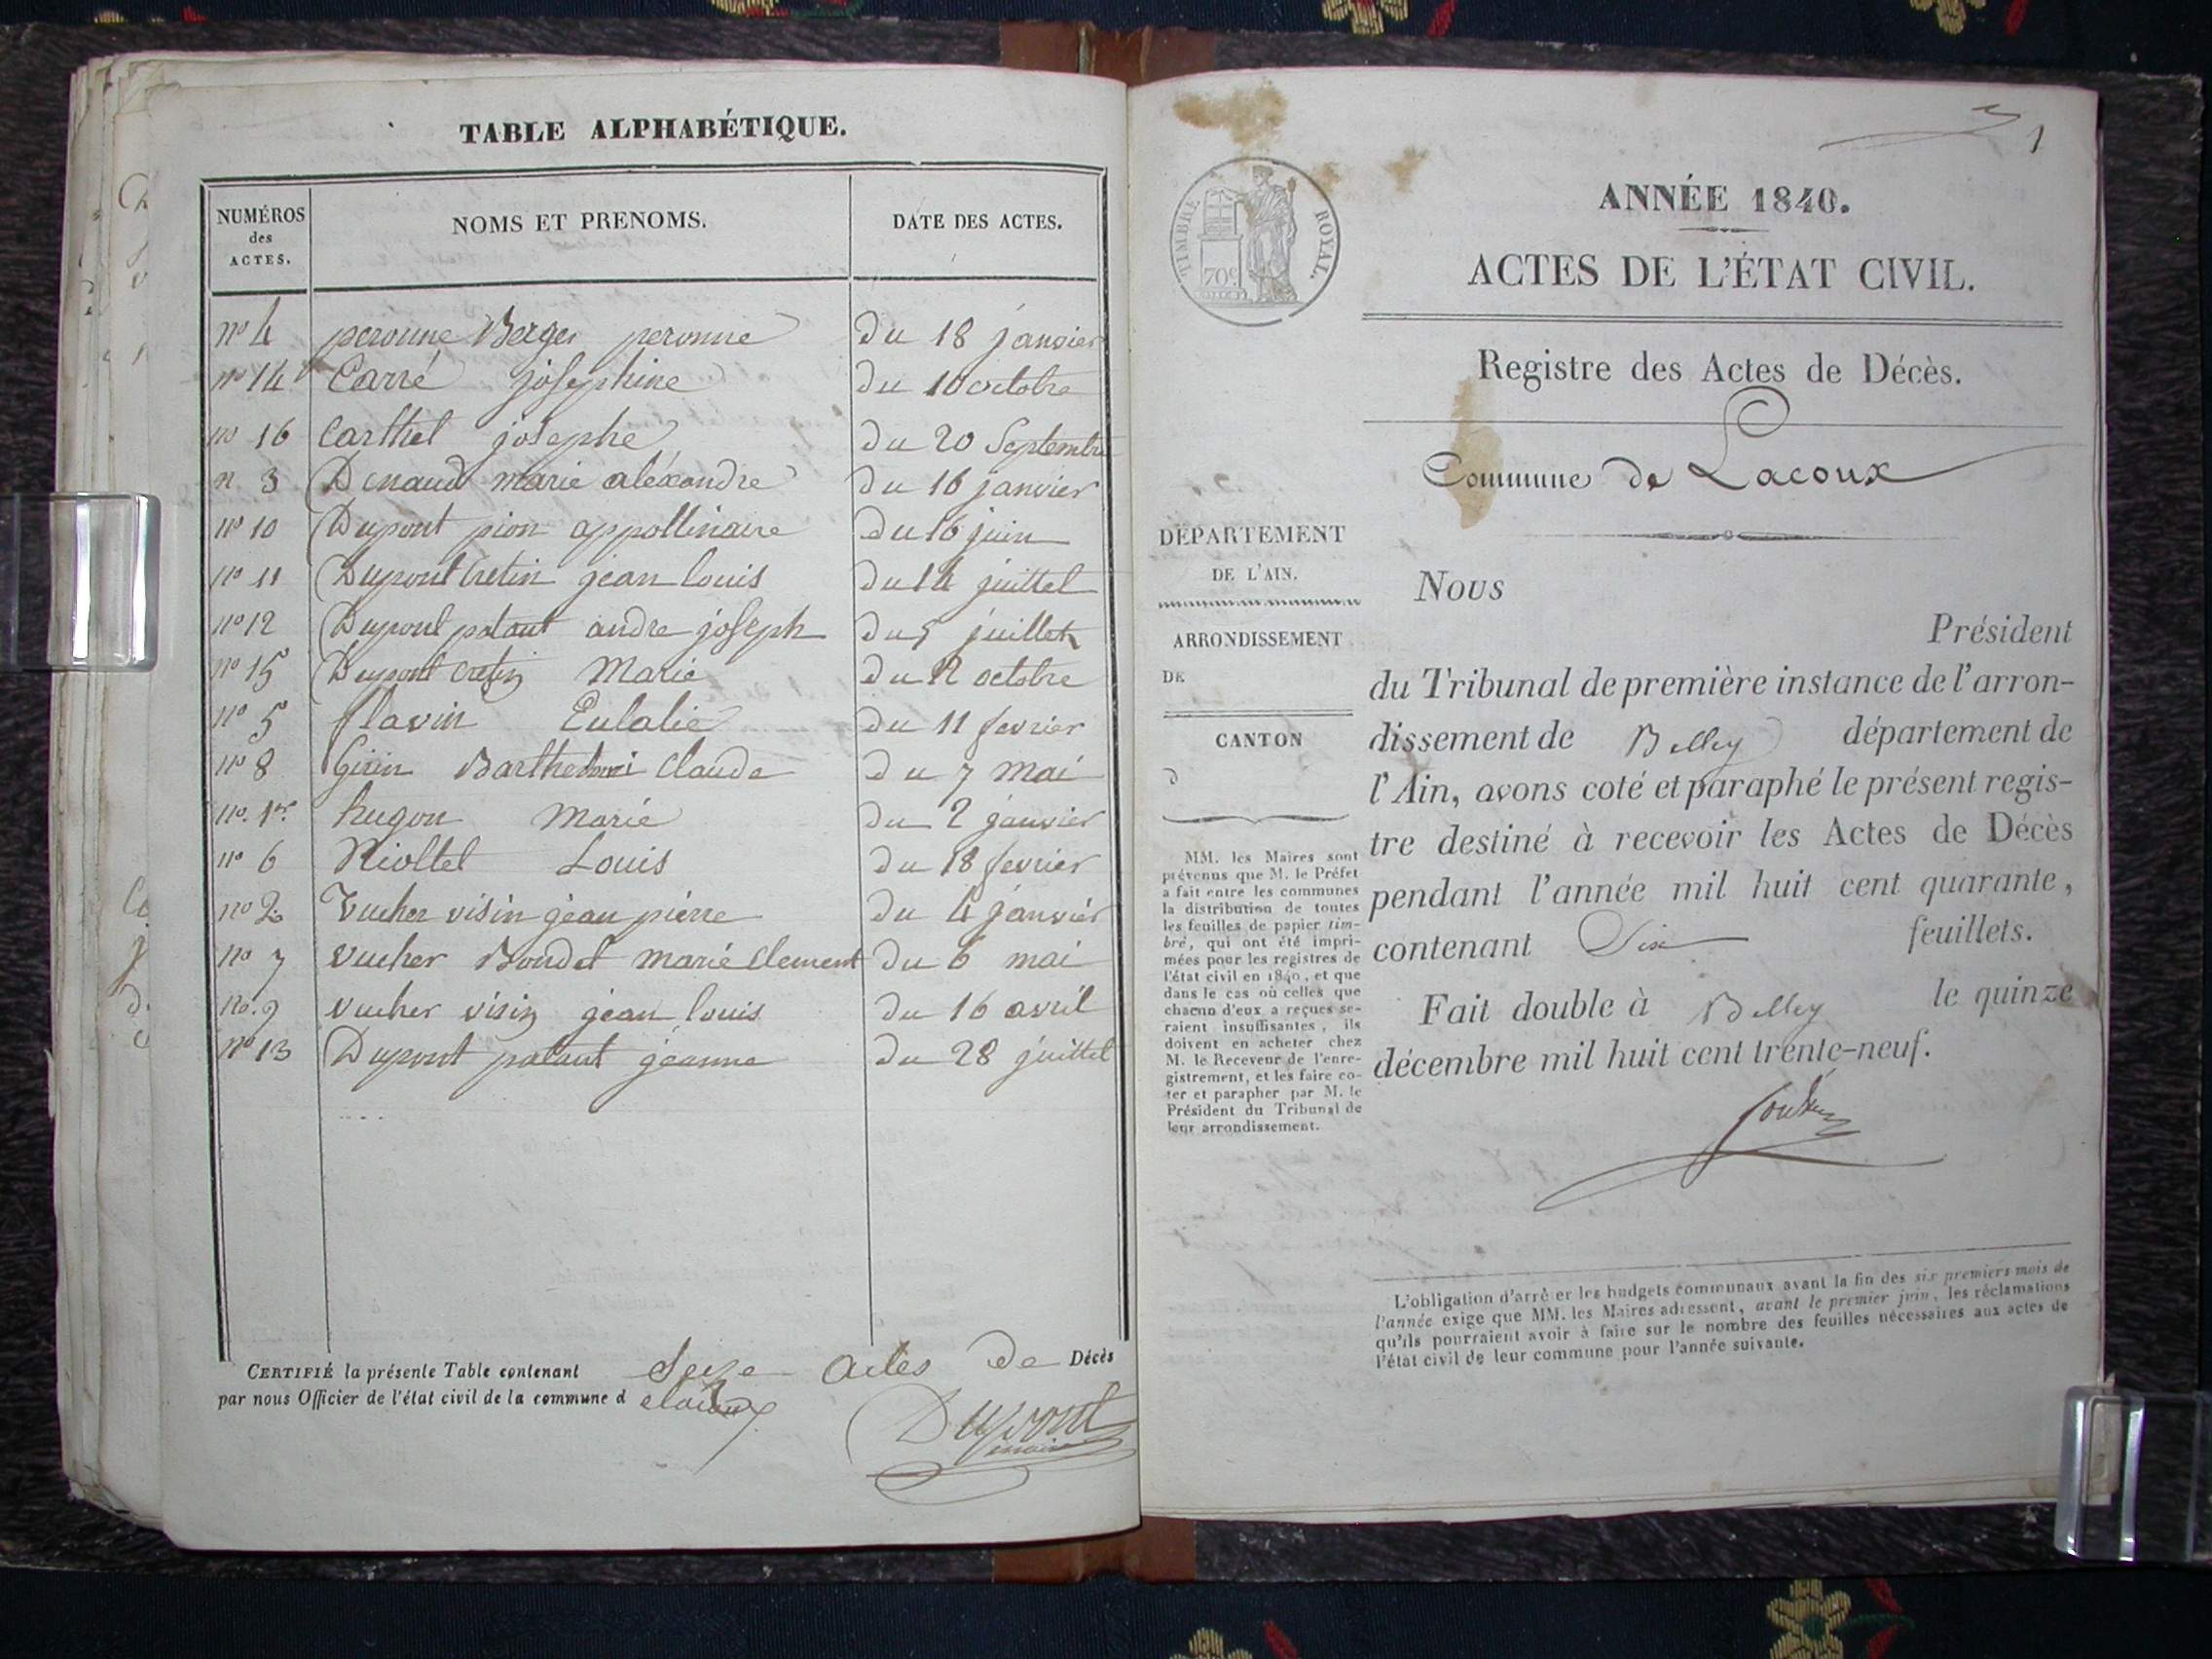 TABLE ALPHABÉTIQUE.
NUMÉROS des ACTES. NOMS ET PRENOMS. DATE DES ACTES.
nº 4 peronne Berger peronne du 18 janvier
nº 14 Carré josephine du 10 octobre
nº 16 Carthel josephe du 20 Septembre
n. 3 Denaud marie aléxandre du 16 janvier
nº 10 Dupont pion appollinaire du 16 juin
nº 11 Dupont Cretin jean louis du 14 juillel
nº 12 Dupont palaut andre joseph du 5 juillet
nº 15 Dupont cretin Marie du 12 octobre
nº 5 flavin Eulalie du 11 fevrier
nº 8 Girin Barthelemi claude du 7 mai
nº. 1er. hugon marie du 2 janvier
nº 6 Riollel Louis du 18 fevrier
nº 2 Vucher visin jean pierre du 4 janvier
nº 7 vucher Boudet marie clement du 6 mai
nº. 9 vucher visin jean louis du 16 avril
nº 13 Dupont palaut jeanne du 28 juillel
CERTIFIÉ la présente Table contenant Seize actes de Décès
par nous Officier de l'état civil de la commune d elacoux
Dupont
maire
1
TIMBRE ROYAL.
70c.
ANNÉE 1840.
ACTES DE L'ÉTAT CIVIL.
Registre des Actes de Décès.
Commune de Lacoux
DÉPARTEMENT
DE L'AIN.
ARRONDISSEMENT
DE
CANTON
D
MM. les Maires sont
prévenus que M. le Préfet
a fait entre les communes
la distribution de toutes
les feuilles de papier tim-
bré, qui ont été impri-
mées pour les registres de
l'état civil en 1840, et que
dans le cas où celles que
chacun d'eux a reçues se-
raient insuffisantes, ils
doivent en acheter chez
M. le Receveur de l'enre-
gistrement, et les faire co-
ter et parapher par M. le
Président du Tribunal de
leur arrondissement.
Nous
Président
du Tribunal de première instance de l'arron-
dissement de Belley département de
l'Ain, avons coté et paraphé le présent regis-
tre destiné à recevoir les Actes de Décès
pendant l'année mil huit cent quarante,
contenant Six feuillets.
Fait double à Belley le quinze
décembre mil huit cent trente-neuf.
L'obligation d'arrê er les budgets communaux avant la fin des six premiers mois de
l'année exige que MM. les Maires adressent, avant le premier juin, les réclamations
qu'ils pourraient avoir à faire sur le nombre des feuilles nécessaires aux actes de
l'état civil de leur commune pour l'année suivante.